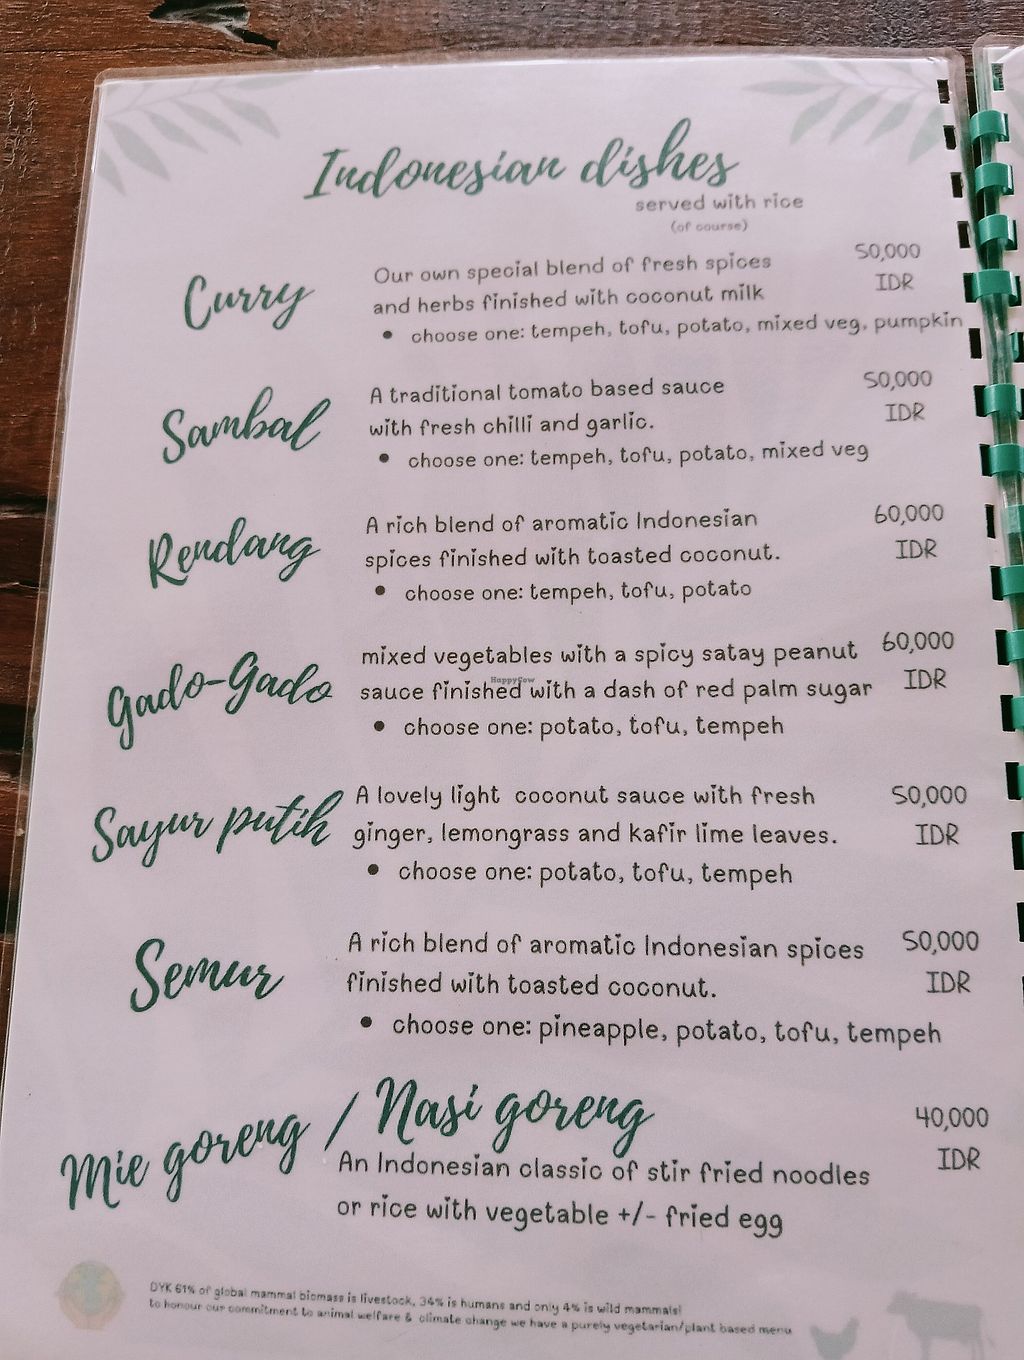 Indonesian dishes
served with rice
(of course)
Curry
Our own special blend of fresh spices
and herbs finished with coconut milk
• choose one: tempeh, tofu, potato, mixed veg, pumpkin
50,000
IDR
Sambal
A traditional tomato based sauce
with fresh chilli and garlic.
• choose one: tempeh, tofu, potato, mixed veg
50,000
IDR
Rendang
A rich blend of aromatic Indonesian
spices finished with toasted coconut.
• choose one: tempeh, tofu, potato
60,000
IDR
Gado-Gado
mixed vegetables with a spicy satay peanut
sauce finished with a dash of red palm sugar
• choose one: potato, tofu, tempeh
60,000
IDR
HappyCow
Sayur putih
A lovely light coconut sauce with fresh
ginger, lemongrass and kafir lime leaves.
• choose one: potato, tofu, tempeh
50,000
IDR
Semur
A rich blend of aromatic Indonesian spices
finished with toasted coconut.
• choose one: pineapple, potato, tofu, tempeh
50,000
IDR
Mie goreng / Nasi goreng
An Indonesian classic of stir fried noodles
or rice with vegetable +/- fried egg
40,000
IDR
DYK 61% of global mammal biomass is livestock, 34% is humans and only 4% is wild mammals!
to honour our commitment to animal welfare & climate change we have a purely vegetarian/plant based menu